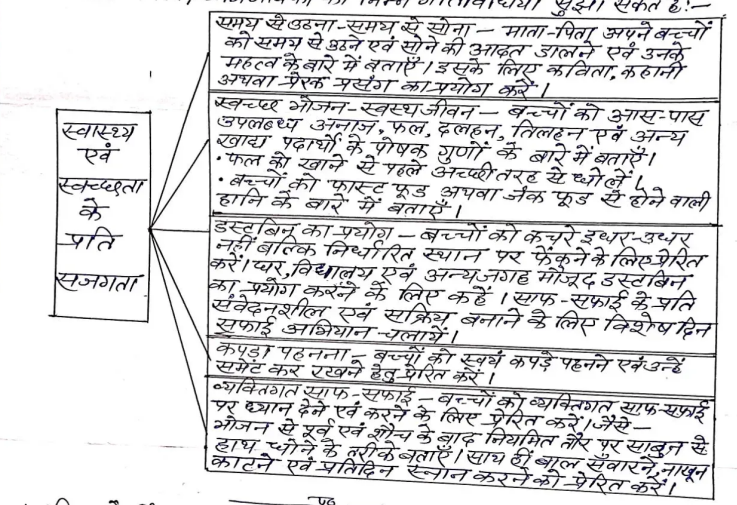 निम्न गतिविधियाँ सुझा सकते हैं:-
स्वास्थ्य
एवं
स्वच्छता
के
प्रति
सजगता
समय से उठना-समय से सोना – माता-पिता अपने बच्चों
को समय से उठने एवं सोने की आदत डालने एवं उनके
महत्व के बारे में बताएँ। इसके लिए कविता, कहानी
अथवा प्रेरक प्रसंग का प्रयोग करें।
स्वच्छ भोजन-स्वस्थ जीवन – बच्चों को आस-पास
उपलब्ध अनाज, फल, दलहन, तिलहन एवं अन्य
खाद्य पदार्थों के पोषक गुणों के बारे में बताएँ।
• फल को खाने से पहले अच्छी तरह से धो लें।
• बच्चों को फास्ट फूड अथवा जंक फूड से होने वाली
हानि के बारे में बताएँ।
डस्टबिन का प्रयोग – बच्चों को कचरे इधर-उधर
नहीं बल्कि निर्धारित स्थान पर फेंकने के लिए प्रेरित
करें। घर, विद्यालय एवं अन्य जगह मौजूद डस्टबिन
का प्रयोग करने के लिए कहें। साफ-सफाई के प्रति
संवेदनशील एवं सक्रिय बनाने के लिए विशेष दिन
सफाई अभियान चलायें।
कपड़ा पहनना – बच्चों को स्वयं कपड़े पहनने एवं उन्हें
समेट कर रखने हेतु प्रेरित करें।
व्यक्तिगत साफ-सफाई – बच्चों को व्यक्तिगत साफ-सफाई
पर ध्यान देने एवं करने के लिए प्रेरित करें। जैसे –
भोजन से पूर्व एवं शौच के बाद नियमित तौर पर साबुन से
हाथ धोने के तरीके बताएँ। साथ हीं बाल सँवारने, नाखून
काटने एवं प्रतिदिन स्नान करने को प्रेरित करें।